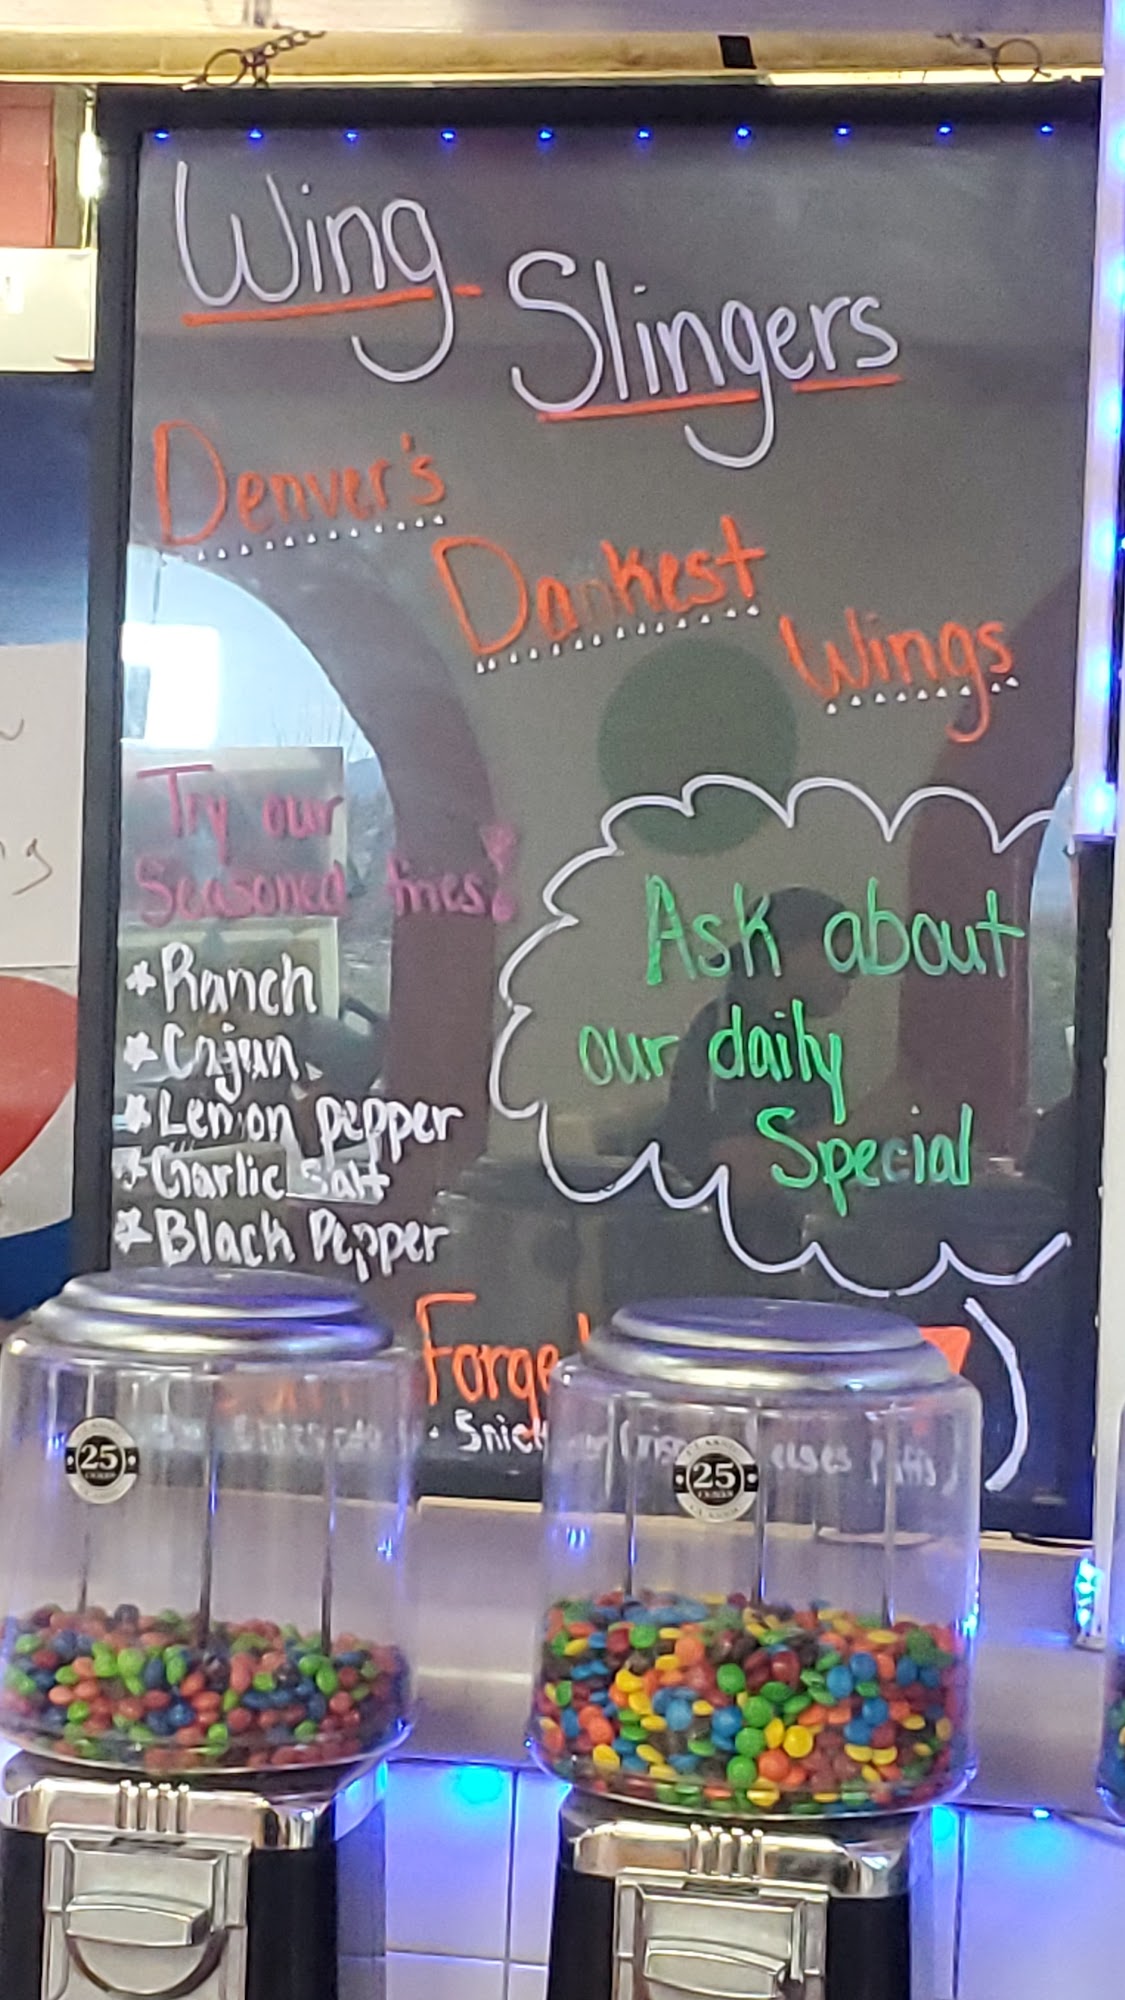 Wing
Slingers
Denver's
Dankest
Wings
Try our
Seasoned fries!
*Ranch
*Cajun
*Lemon pepper
*Garlic Salt
*Black Pepper
Ask about
our daily
Special
25
25